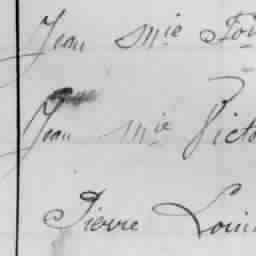 Jean Mie
Jean Mie Victo
Pierre Louis